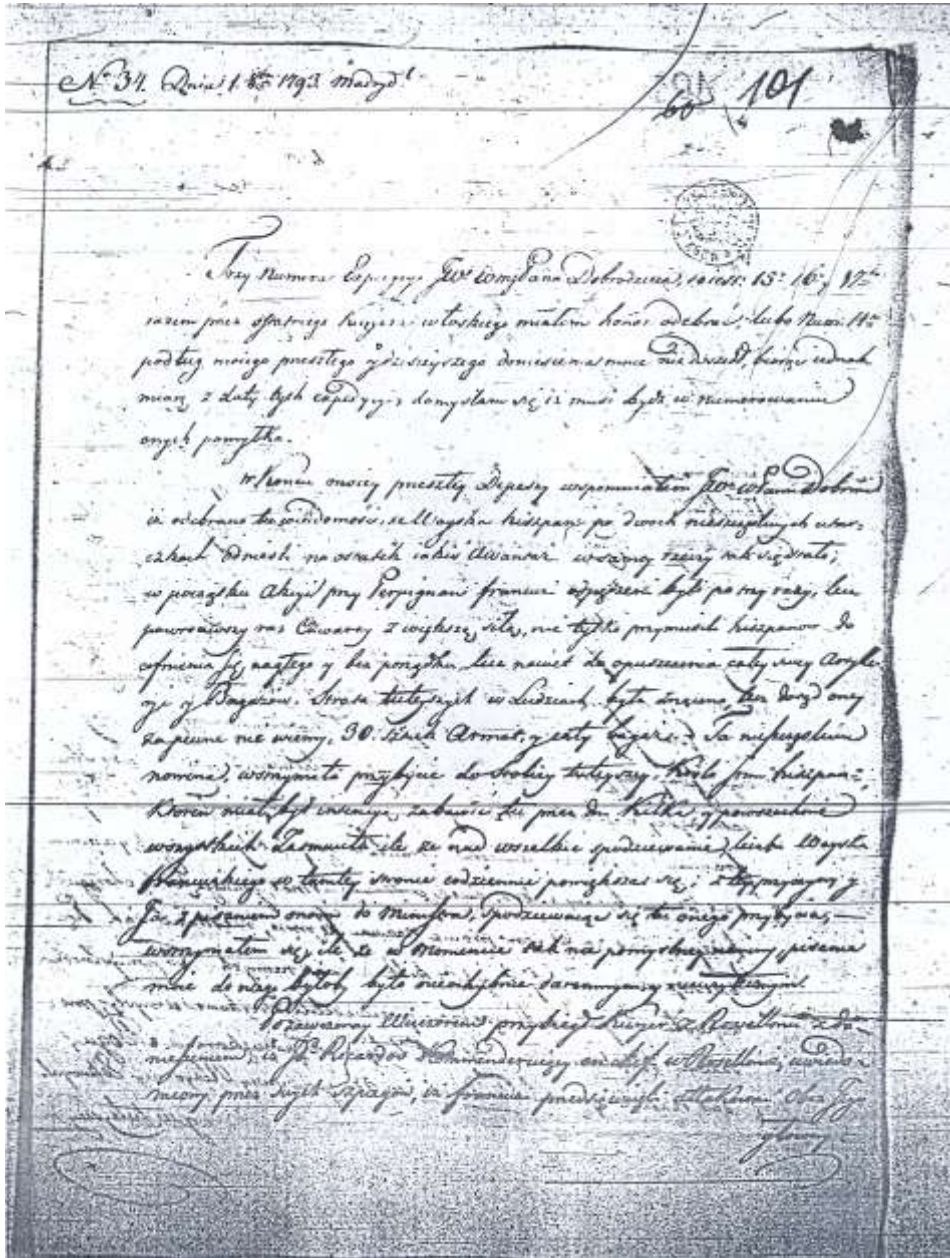 No 34. Dnia 1. 8bris 1793 Madryd
60 101
Trzy Numera Expedycyi JWo WmćPana Dobrodzieja, to iest: 15o 16o y 17o
razem przez ostatniego Kuryera włoskiego miałem honor odebrać; lubo Num: 14o
podług moiego przeszłego y dzisieyszego doniesienia mnie nie doszedł, biorąc iednak
miarę z Daty tych expedycyi, domyślam się iż musi bydź w numerowaniu
onych pomyłka.
W Końcu moiey przeszłey Depeszy wspomniałem JWo WPanu Dobrod
iż odebrano tu wiadomość, że Woyska hiszpań: po dwoch nieszczęśliwych utar-
czkach odniosły na ostatek iakiś Awantaż w samey rzeczy tak się stało;
w początku Akcyi przy Perpignan francuzi odpędzeni byli po trzy razy, lecz
powrociwszy raz Czwarty z większą siłą, nie tylko przymusili hiszpanow do
cofnienia się nagłego y bez porządku, lecz nawet do opuszczenia całey swey Artyle-
ryi y Bagażow. Strata tuteyszych w Ludziach była znaczna, lecz dotąd oney
zapewne nie wiemy, 30. sztuk Armat, y cały bagaż. Ta nieszczęśliwa
nowina, wstrzymała przybycie do Stolicy tuteyszey Krola Jmci hiszpań:
Ktoren miał bydź zabawić tu przez dni Kilka, y powszechnie
wszystkich zasmuciła ile że nad wszelkie spodziewanie liczba Woyska
francuskiego w tamtey stronie codziennie powiększa się; z tey przyczyny y
Ja z pisaniem moim do Ministra, spodziewaiąc się tu onego przybycia,
wstrzymałem się, ile że w momencie tak nie pomyślney nowiny pisanie
mnie do niego byłoby było nieochybnie daremnym, y nieużytecznym.
Wieczorem przybiegł Kuryer z Rosellonu z do-
niesieniem, iż Jł Ricardos Kommenderuiący en chef w Rosellonie, uwiado-
miony przez swych szpiegow, iż francuzi przedsięwzięli attakować oboz Jego
głowny